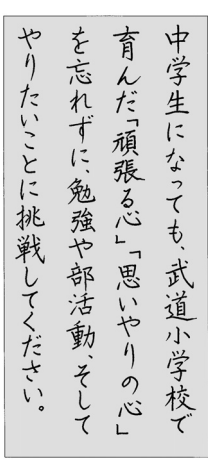 中学生になっても、武道小学校で
育んだ「頑張る心」「思いやりの心」
を忘れずに、勉強や部活動、そして
やりたいことに挑戦してください。